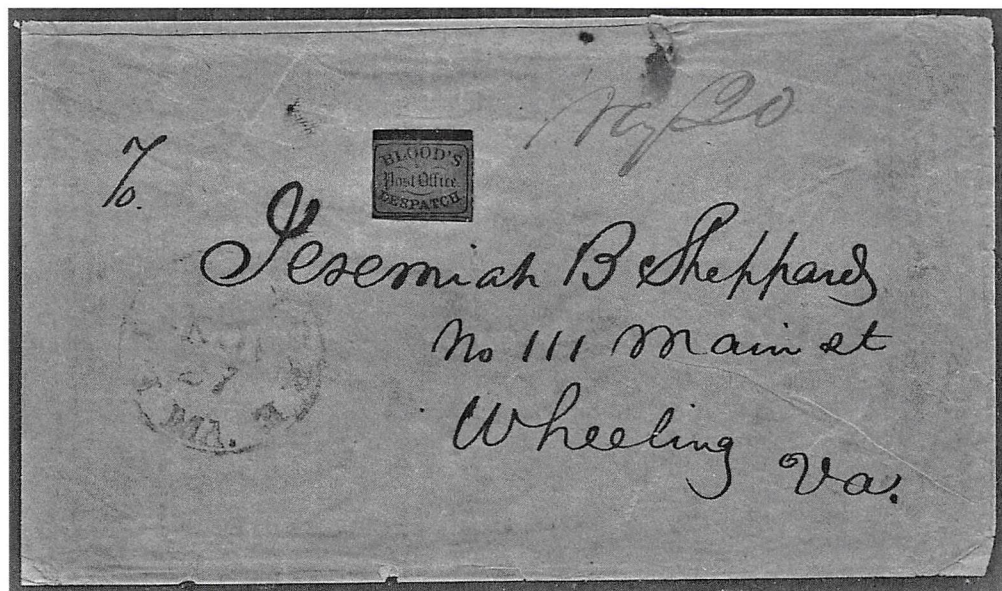 To.
BLOOD'S
Post Office
DESPATCH
Jeremiah B Sheppard
No 111 Main st
Wheeling Va.
27
PHA.